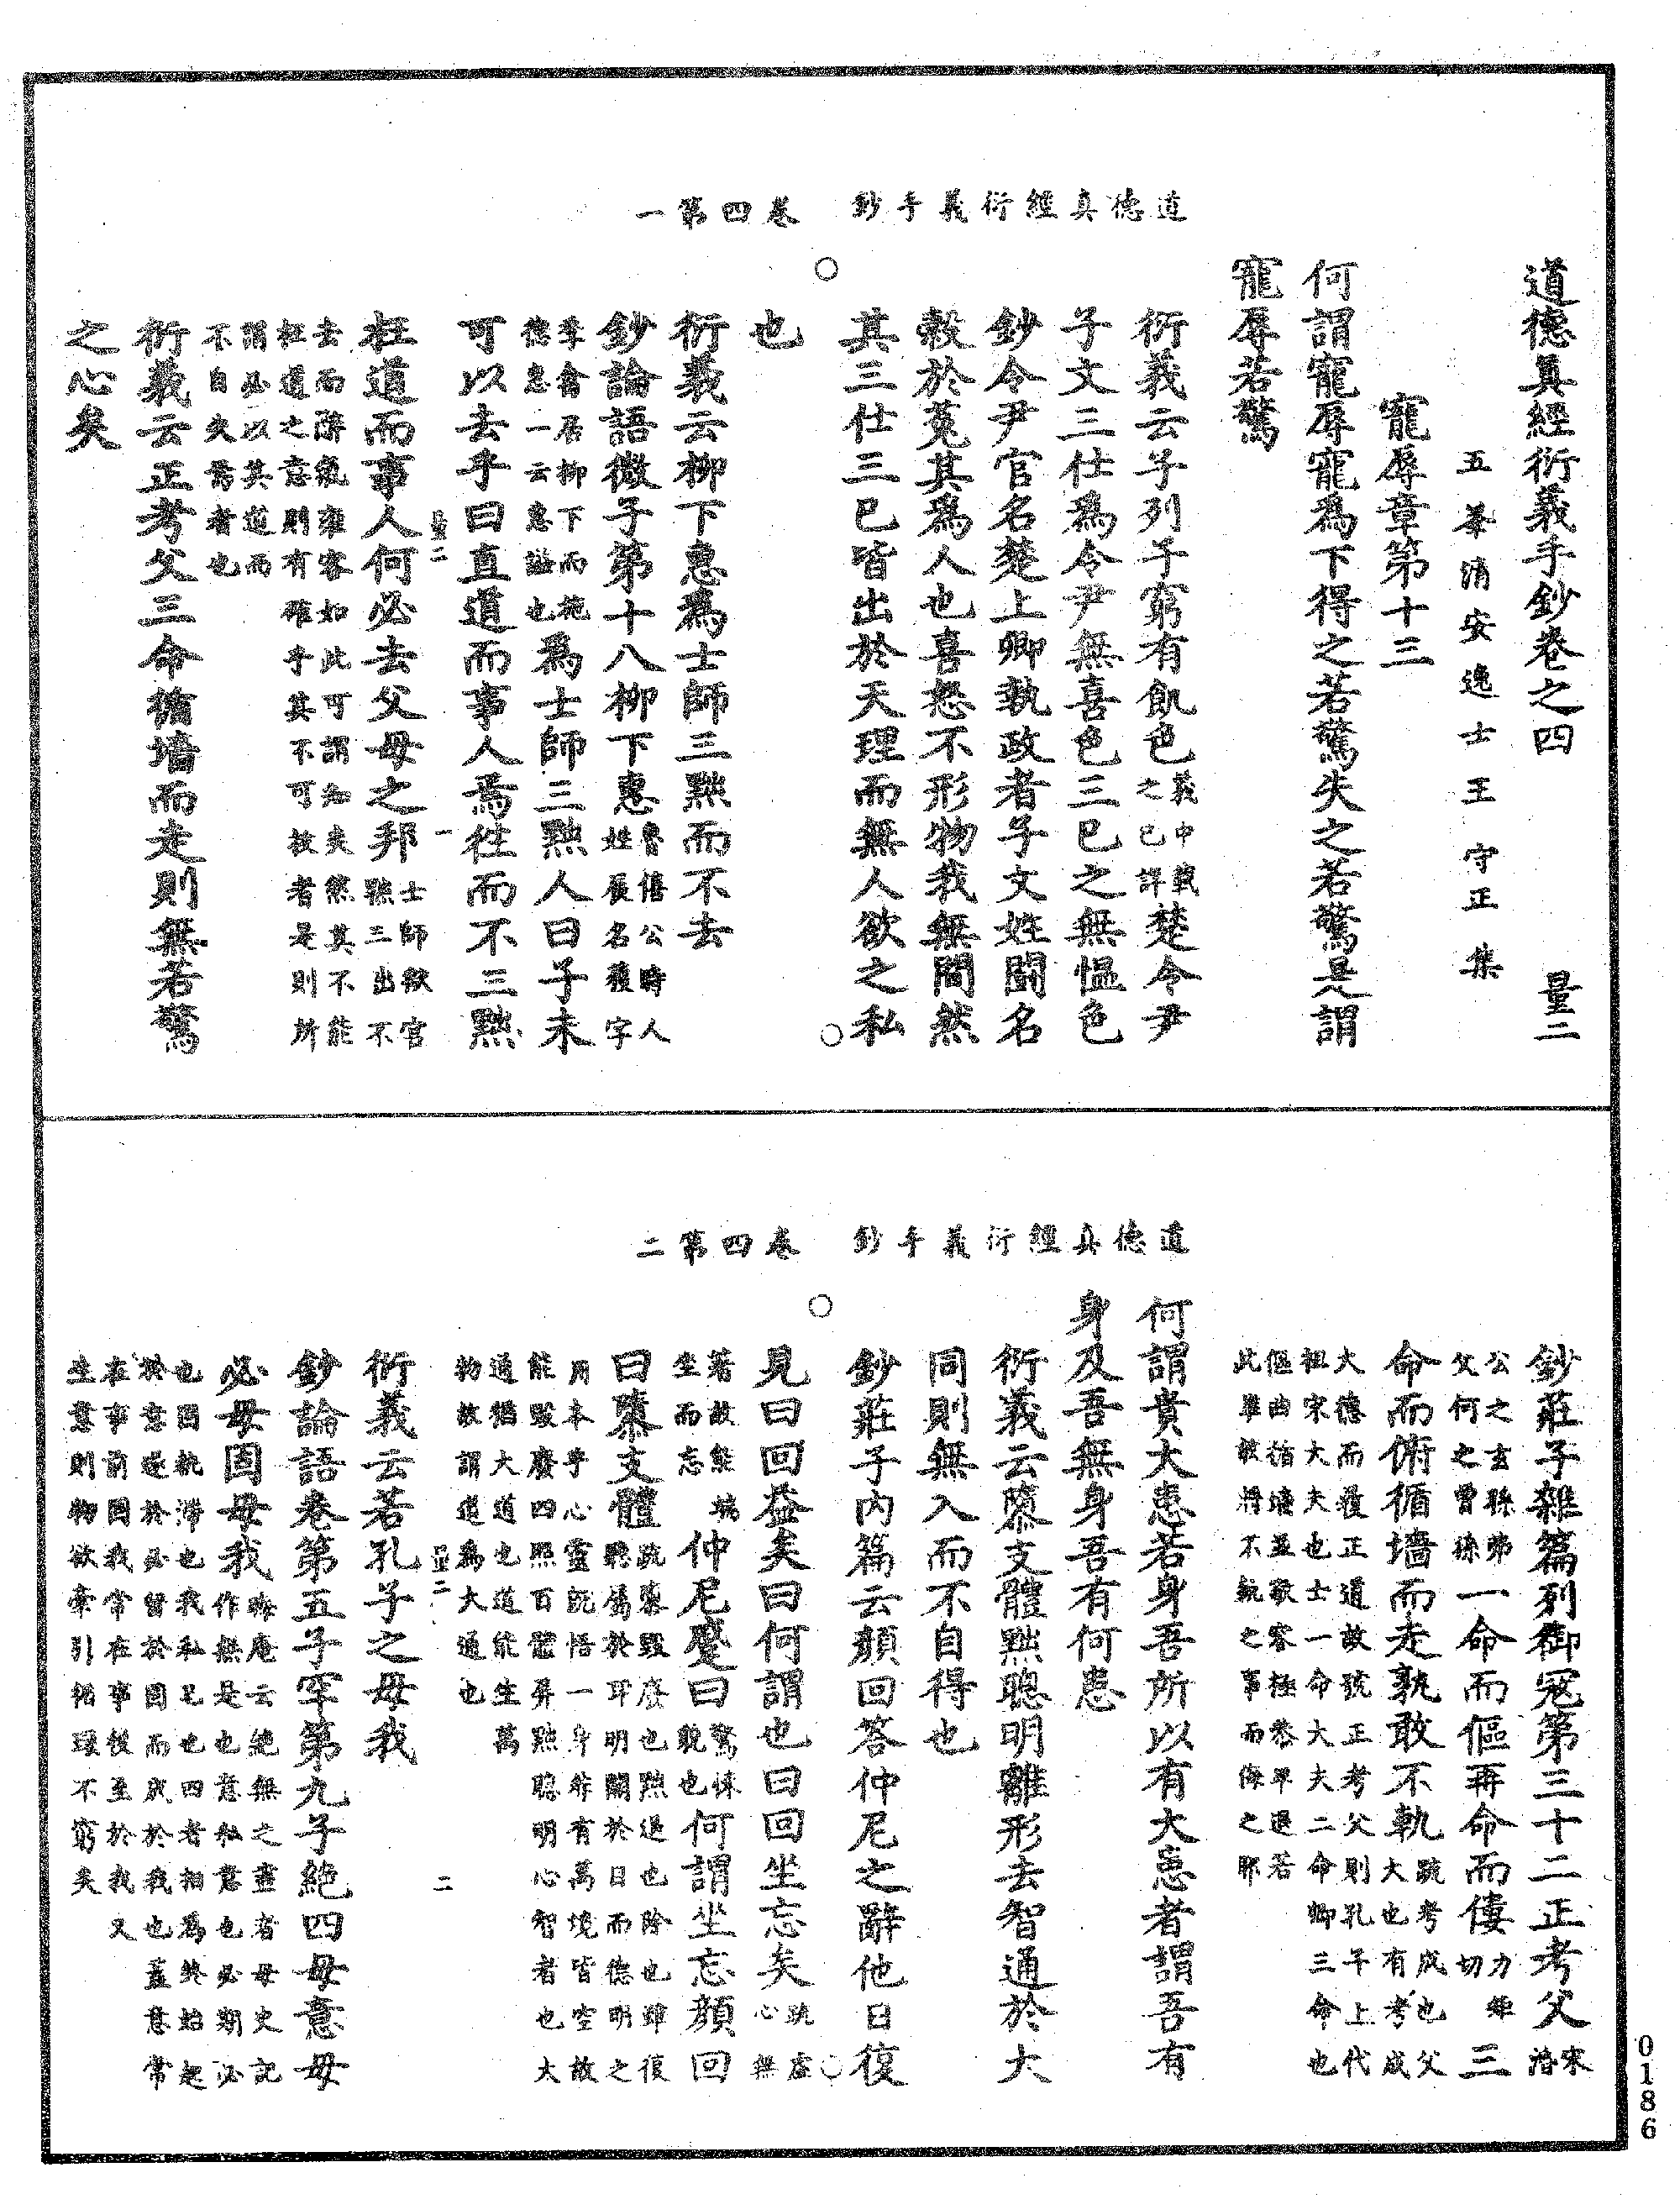 道德真經衍義手鈔　卷四第一
道德真經衍義手鈔卷之四　量二
五峯清安逸士王守正集
寵辱章第十三
何謂寵辱寵為下得之若驚失之若驚是謂
寵辱若驚
衍義云子列子窮有飢色義中載之已詳楚令尹
子文三仕爲令尹無喜色三已之無慍色
鈔令尹官名楚上卿執政者子文姓鬭名
穀於菟其爲人也喜怒不形物我無間然
其三仕三已皆出於天理而無人欲之私
也
衍義云柳下惠爲士師三黜而不去
鈔論語微子第十八柳下惠魯僖公時人姓展名獲字
季禽居柳下而施德惠一云惠諡也爲士師三黜人曰子未
可以去乎曰直道而事人焉往而不三黜
枉道而事人何必去父母之邦士師獄官黜三出不
去而辭氣雍容如此可謂和矣然其不能枉道之意則有確乎其不可拔者是則所
謂必以其道而不自失焉者也
衍義云正考父三命循墻而走則無若驚
之心矣
量二　一
道德真經衍義手鈔　卷四第二
鈔莊子雜篇列御寇第三十二正考父宋湣
公之玄孫弗父何之曾孫一命而傴再命而僂力矩切三
命而俯循墻而走孰敢不軌疏考成也父大也有考成
大德而履正道故號正考父則孔子上代祖宋大夫也士一命大夫二命卿三命也
傴曲循墻並敬容極恭卑退若此誰敢將不軌之事而侮之耶
何謂貴大患若身吾所以有大患者謂吾有
身及吾無身吾有何患
衍義云隳支體黜聰明離形去智通於大
同則無入而不自得也
鈔莊子內篇云顏回答仲尼之辭他日復
見曰回益矣曰何謂也曰回坐忘矣疏虛心無
著故能端坐而忘仲尼蹵曰驚悚貌也何謂坐忘顏回
曰隳支體疏隳毀廢也黜退也除也雖復聰屬於耳明關於目而德明之
用本乎心靈既悟一身非有萬境皆空故能毀廢四肢百體屏黜聰明心智者也大
通猶大道也道能生萬物故謂道爲大通也
衍義云若孔子之毋我
鈔論語卷第五子罕第九子絕四毋意毋
必毋固毋我晦庵云絕無之盡者毋史記作無是也意私意也必期必
也固執滯也我私己也四者相爲終始起於意遂於必留於固而成於我也蓋意常
在事前固我常在事後至於我又生意則物欲牽引循環不窮矣
量二　二
0186